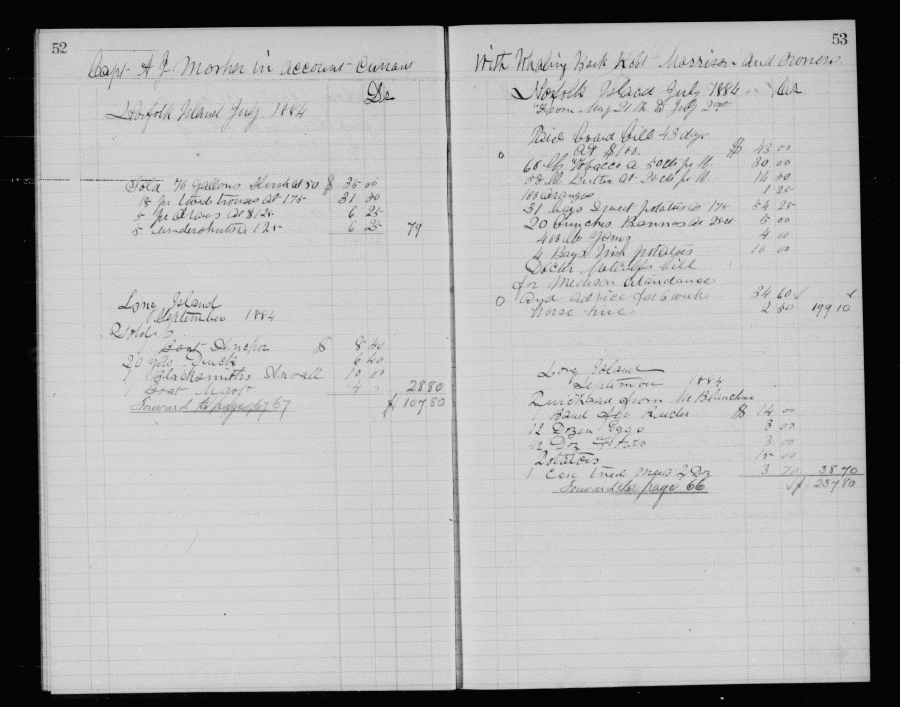 52
Capt A J Mosher in account Currant
Dr
Norfolk Island July 1884
Sold 70 gallons at 50 $ 35 00
18 pr tweed trouses at 175 31 50
5 pr draws at $125 6 25
5 undershirts a 125 6 25 79
Long Island
September 1884
Sold
1 Boat Anchor $ 8 40
20 yds Duck 6 40
1 Blacksmiths Anvall 10 00
1 Boat Mast 4 28 80
Forward to page 67 67
$ 107 80
53
With Whaling Bark Morrison and owners
Norfolk Island July 1884 Cr
From May 21th to July 2nd
Paid board bill 43 dys
At $1.00. $ 43 00
60 lbs Tobacco a 50cts per lb 30 00
lb Butter at 25 cts per lb 14 00
100 oranges 1 25
31 bags Sweet potatoes 175 54 25
20 bunches Bannas at 25cts 5 00
400 lb Yams 4 00
4 Bags Irish potatoes 16 00
Doctor Metcalfs bill
for Medison Atandance
and advice for 6 weeks 24 60
horse hire 2 50 199 10
Long Island
September 1884
Purchased from Mr
$ 14 00
12 Dozen Eggs 3 00
12 Doz 3 00
Potatoes 15 00
1 Case 2 Doz 3 70 38 70
Forward to page 66
$ 237 80